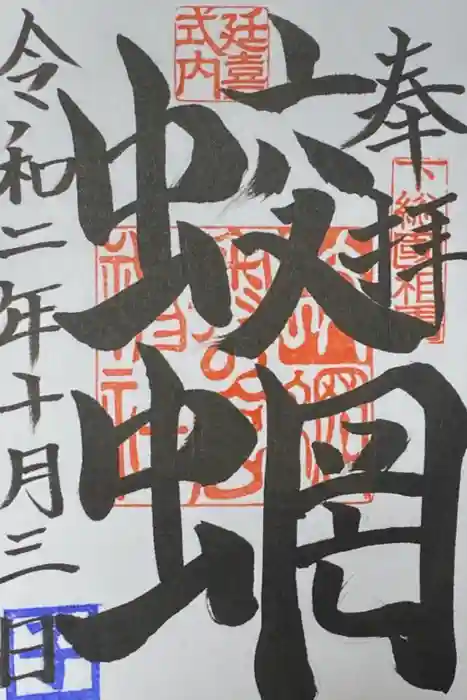 奉拝
下総國相馬
延喜
式内
蛟蝄
令和二年十月三日